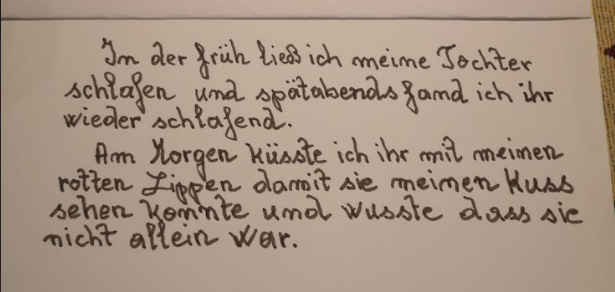 In der früh ließ ich meine Tochter
schlafen und spätabends fand ich ihr
wieder schlafend.
Am Morgen küsste ich ihr mit meinen
rotten Lippen damit sie meinen Kuss
sehen konnte und wusste dass sie
nicht allein war.